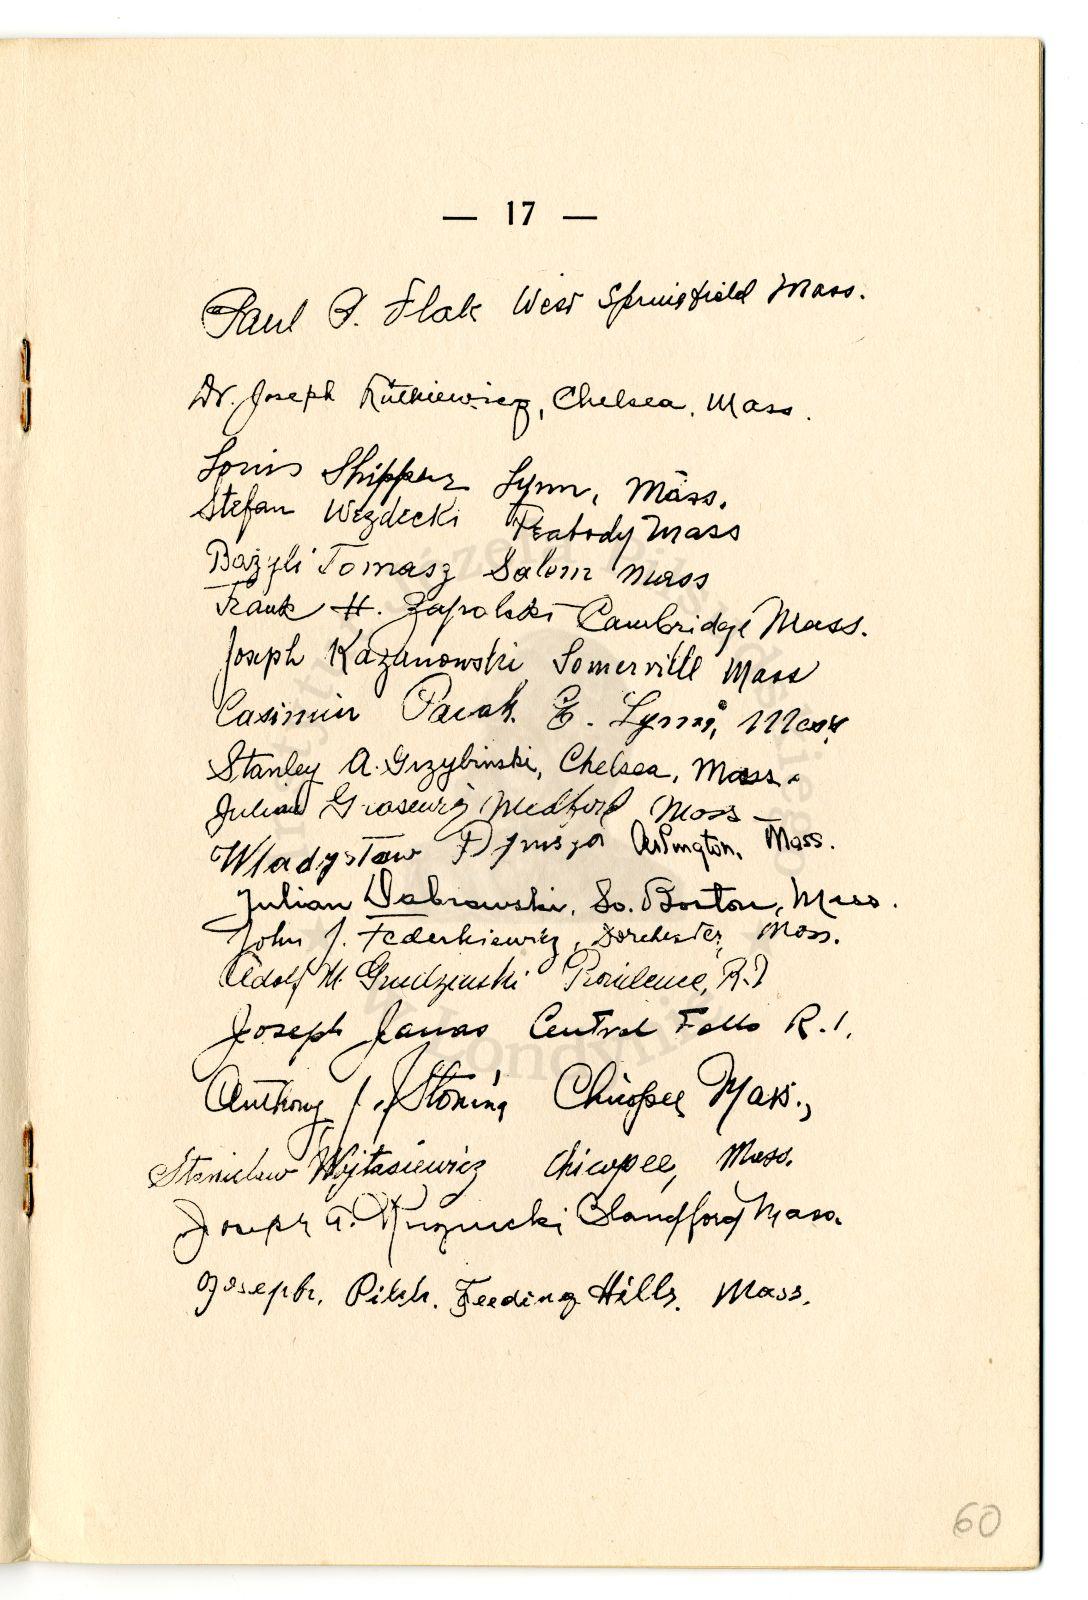 — 17 —
Paul P. Flak West Springfield Mass.
Dr. Joseph Rutkiewicz, Chelsea, Mass.
Louis Shipper Lynn, Mass.
Stefan Wezdecki Peabody Mass
Bazyli Tomasz Salem Mass
Frank H. Zapolski Cambridge Mass.
Joseph Kazanowski Somerville Mass
Casimir E. Lynn, Mass.
Stanley A. Grzybinski, Chelsea, Mass.
Julian Medford Mass
Władysław Arlington, Mass.
Julian Dabrowski, So. Boston, Mass.
John J. Federkiewicz, Dorchester, Mass.
Adolf M. Grudzinski Providence, R.I
Joseph Janas Central Falls R.I.
Anthony J. Stonina Chicopee Mass.,
Stanislaw Wojtasiewicz Chicopee, Mass.
Joseph Blandford Mass.
Joseph. Filch. Feeding Hills. Mass.
60